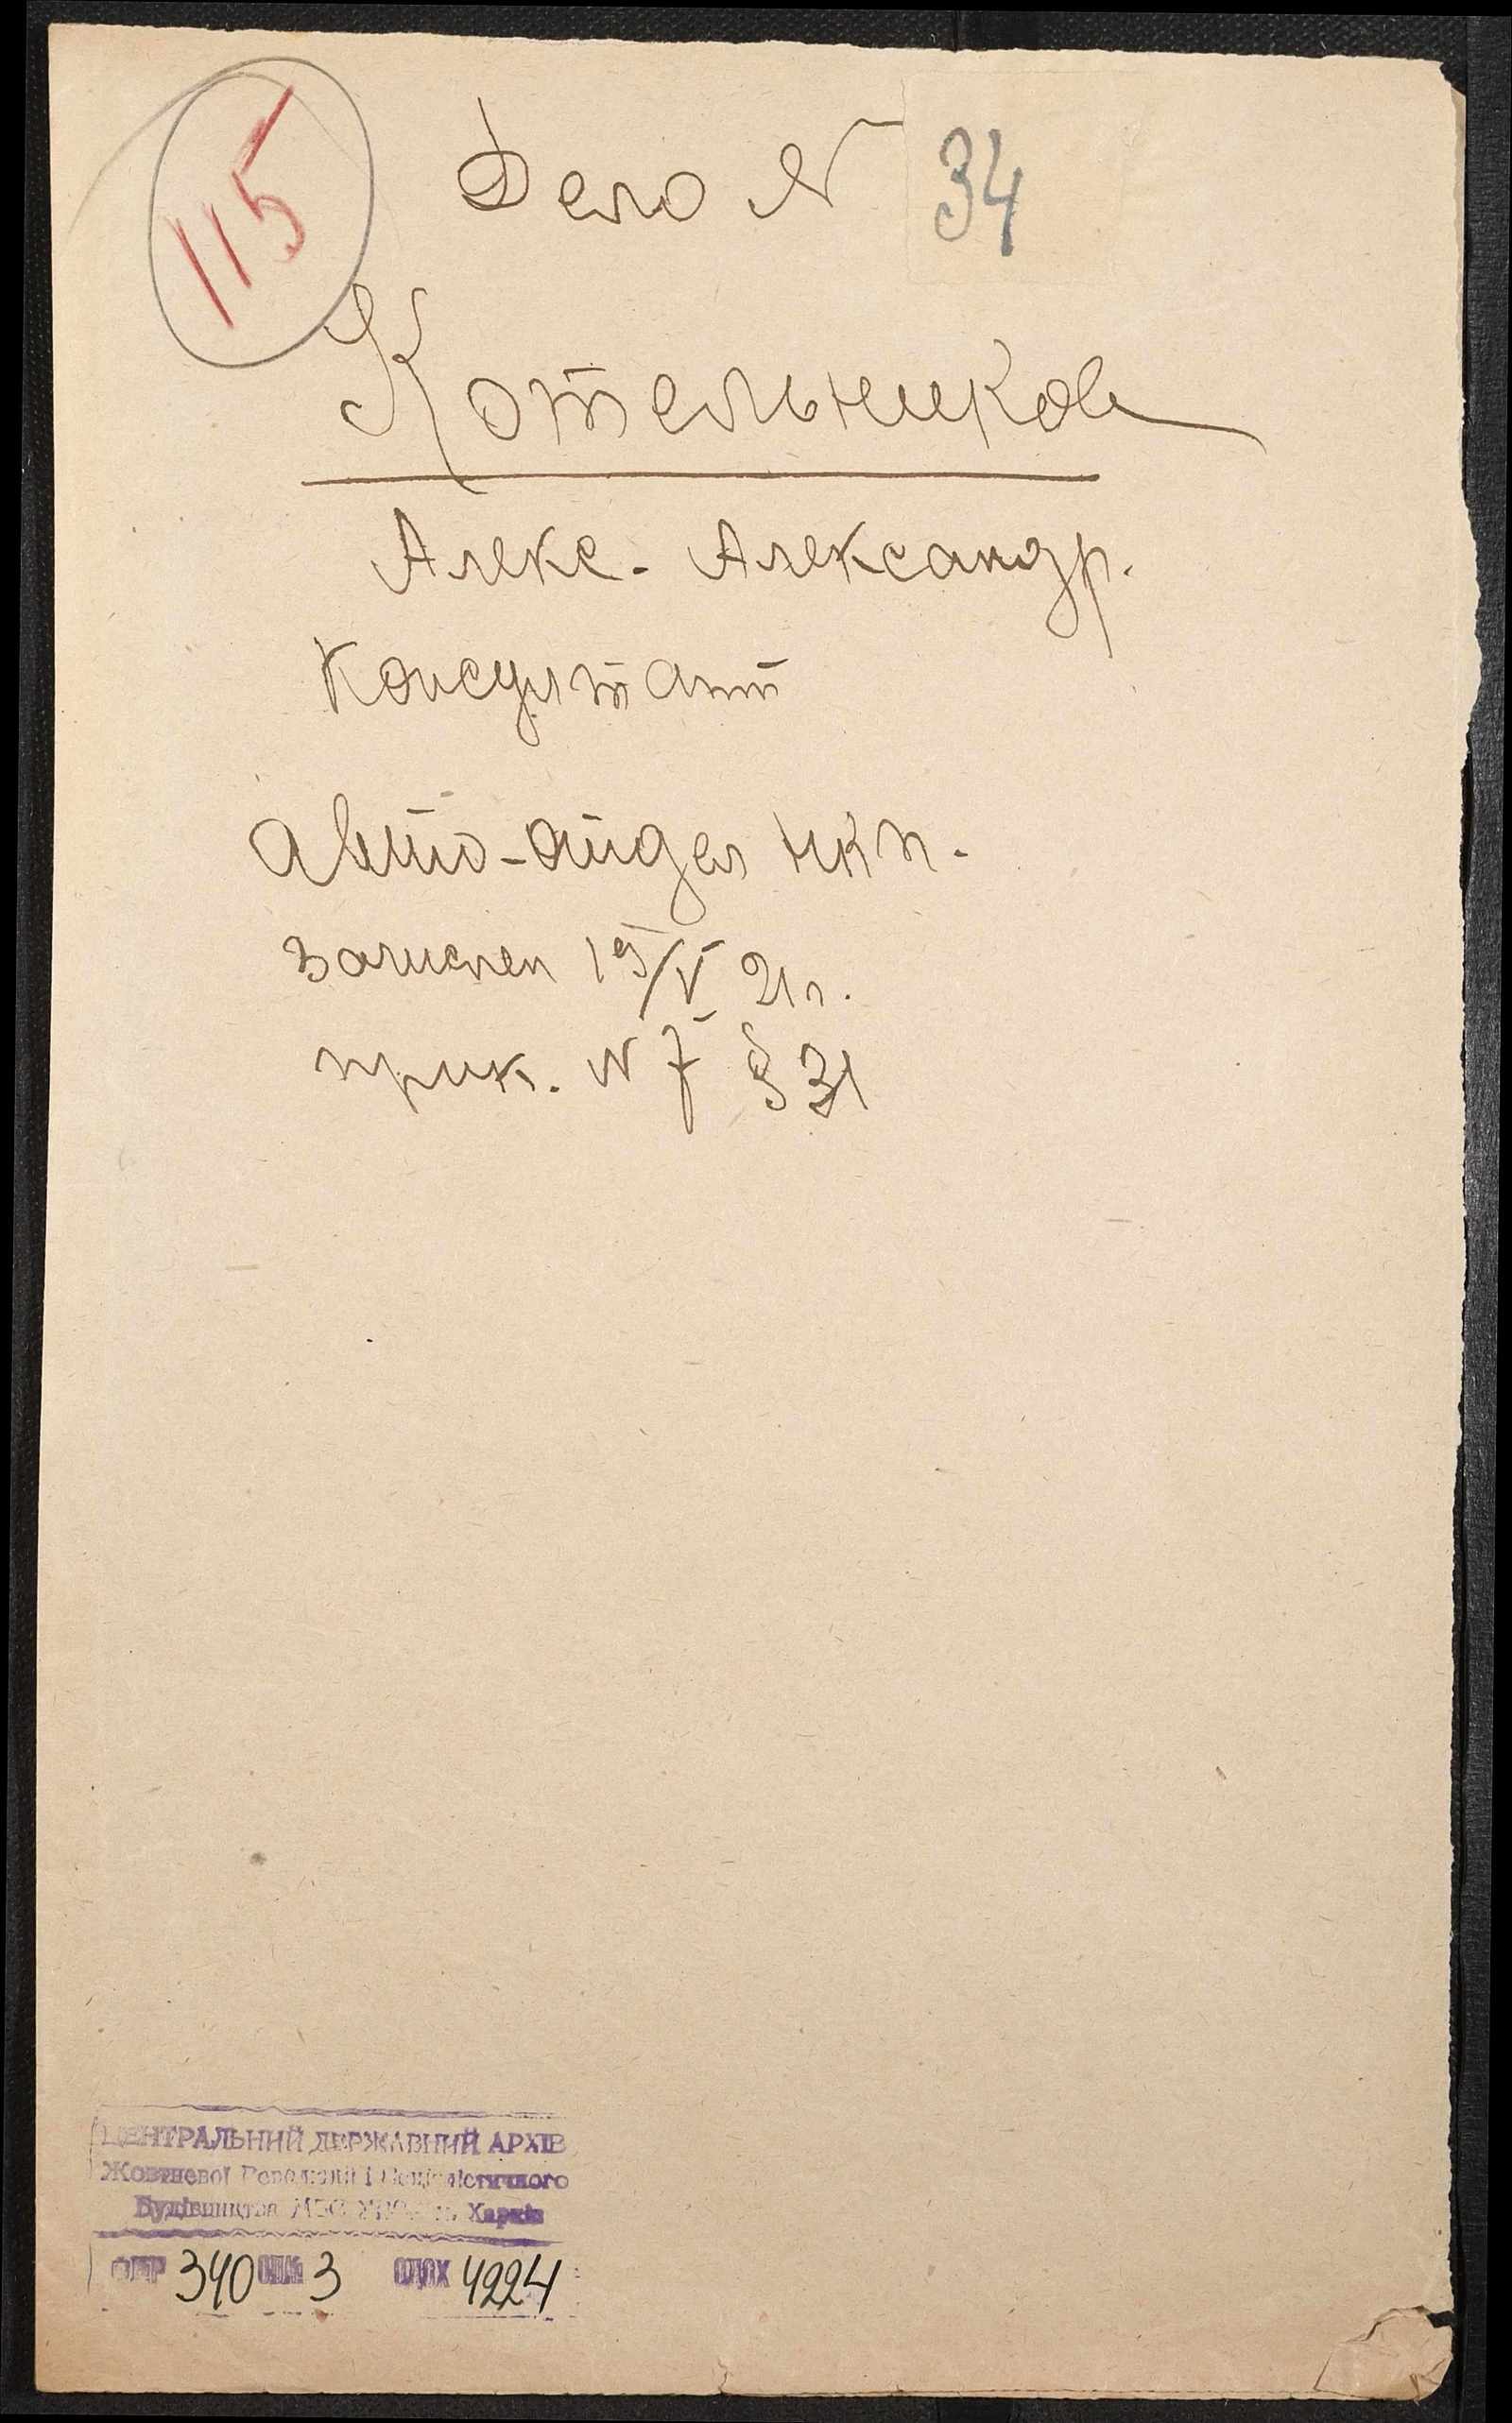 115
Дело N 34
Котельников
Алекс. Александр.
Консултант
авто-отдел НКП.
Зачислен 19/V 21 г.
прик. N 7 § 31
ЦЕНТРАЛЬНИЙ ДЕРЖАВНИЙ АРХІВ
Жовтневої Революції і Соціалістичного
Будівництва Харків
340 3 4224